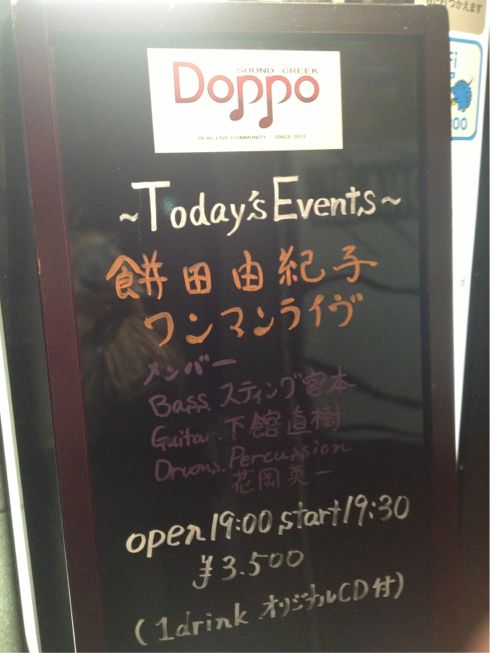 つかえます
SOUND CREEK
Doppo
REAL LIVE COMMUNITY SINCE 2012
~Today's Events~
餅田由紀子
ワンマンライヴ
メンバー
Bass スティング宮本
Guitar 下館直樹
Drums, Percussion
花岡英一
open19:00 start19:30
¥3.500
(1drink オリジナルCD付)